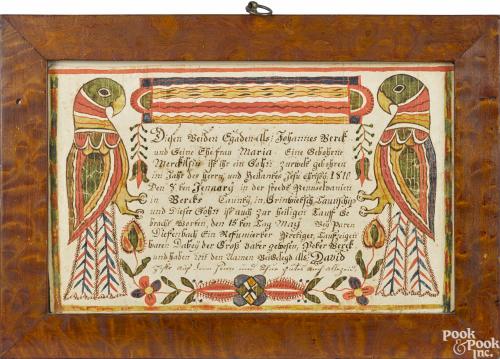 Diesen Beiden Egadew=ells; Johannes Berck
und Seine Ehe frau Maria= Eine Gebohrne
Merckilsin ist ihr ein Sohn zurwelt gebohren
im Jahr der Herrn und Heilandes Jesu Christj. 1810
Den 5 ten Jennarÿ in der steeds Pennselvanien
in Bercks Caunty, in Grinwietsch Taunschip
und Dieser Sohn ist auch Zur heiligen Tauff Ge
bracht Worten, den 18 ten Tag Maÿ Von
Ein Refformierter Prediger, Tauffzeigen
waren Dabeÿ der Groß vater gewesen, Peter Berck
und haben ihm den Namen BeiGelegt als: David
POOK & POOK Inc.